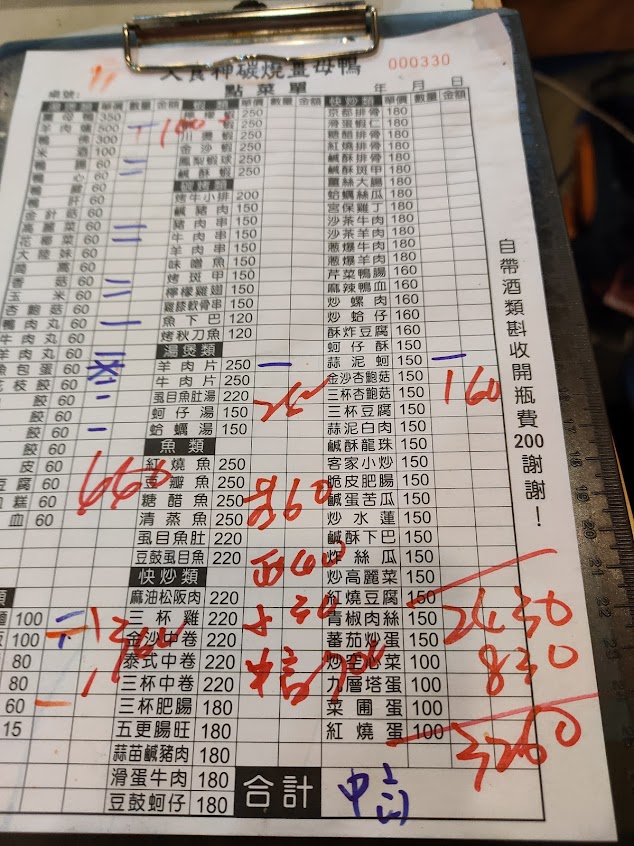 大食神碳燒薑母鴨
000330
點菜單
桌號:
年 月 日
單價 數量 金額
薑母鴨 350
羊肉爐 500
鴨佛 300
米酒 100
鴨腸 60
鴨心 60
鴨腱 60
鴨肝 60
金針菇 60
高麗菜 60
花椰菜 60
大陸妹 60
茼蒿 60
香菇 60
玉米 60
杏鮑菇 60
鴨肉丸 60
牛肉丸 60
羊肉丸 60
魚包蛋 60
花枝餃 60
餃 60
餃 60
餃 60
皮 60
豆腐 60
糕 60
血 60
660
100
100
80
80
60
15
1360
蝦類 單價 數量 金額
蝦 250
蝦 250
金沙蝦 250
鳳梨蝦球 250
鹹酥蝦 250
碳烤類
烤牛小排 200
鹹豬肉 150
豬肉串 150
牛肉串 150
羊肉串 150
味噌魚 150
烤斑甲 150
檸檬雞翅 150
雞膝軟骨串 150
魚下巴 120
烤秋刀魚 120
湯煲類
羊肉片 250
牛肉片 250
虱目魚肚湯 220
蚵仔湯 150
蛤蠣湯 150
魚類
紅燒魚 250
豆瓣魚 250
糖醋魚 250
清蒸魚 250
虱目魚肚 220
豆鼓虱目魚 220
快炒類
麻油松阪肉 220
三杯雞 220
金沙中卷 220
泰式中卷 220
三杯中卷 220
三杯肥腸 180
五更腸旺 180
蒜苗鹹豬肉 180
滑蛋牛肉 180
豆鼓蚵仔 180
快炒類 單價 數量 金額
京都排骨 180
滑蛋蝦仁 180
糖醋排骨 180
紅燒排骨 180
鹹酥排骨 180
鹹酥斑甲 180
薑絲大腸 180
蛤蠣絲瓜 180
宮保雞丁 180
沙茶牛肉 180
沙茶羊肉 180
蔥爆牛肉 180
蔥爆羊肉 180
芹菜鴨腸 160
麻辣鴨血 160
炒螺肉 160
炒蛤仔 160
酥炸豆腐 160
蚵仔酥 150
蒜泥蚵 150
金沙杏鮑菇 150
三杯杏鮑菇 150
三杯豆腐 150
蒜泥白肉 150
鹹酥龍珠 150
客家小炒 150
脆皮肥腸 150
鹹蛋苦瓜 150
炒水蓮 150
鹹酥下巴 150
炸絲瓜 150
炒高麗菜 150
紅燒豆腐 150
青椒肉絲 150
蕃茄炒蛋 150
炒空心菜 100
九層塔蛋 100
菜圃蛋 100
紅燒蛋 100
160
2430
830
3260
合計
自帶酒類斟收開瓶費200謝謝！